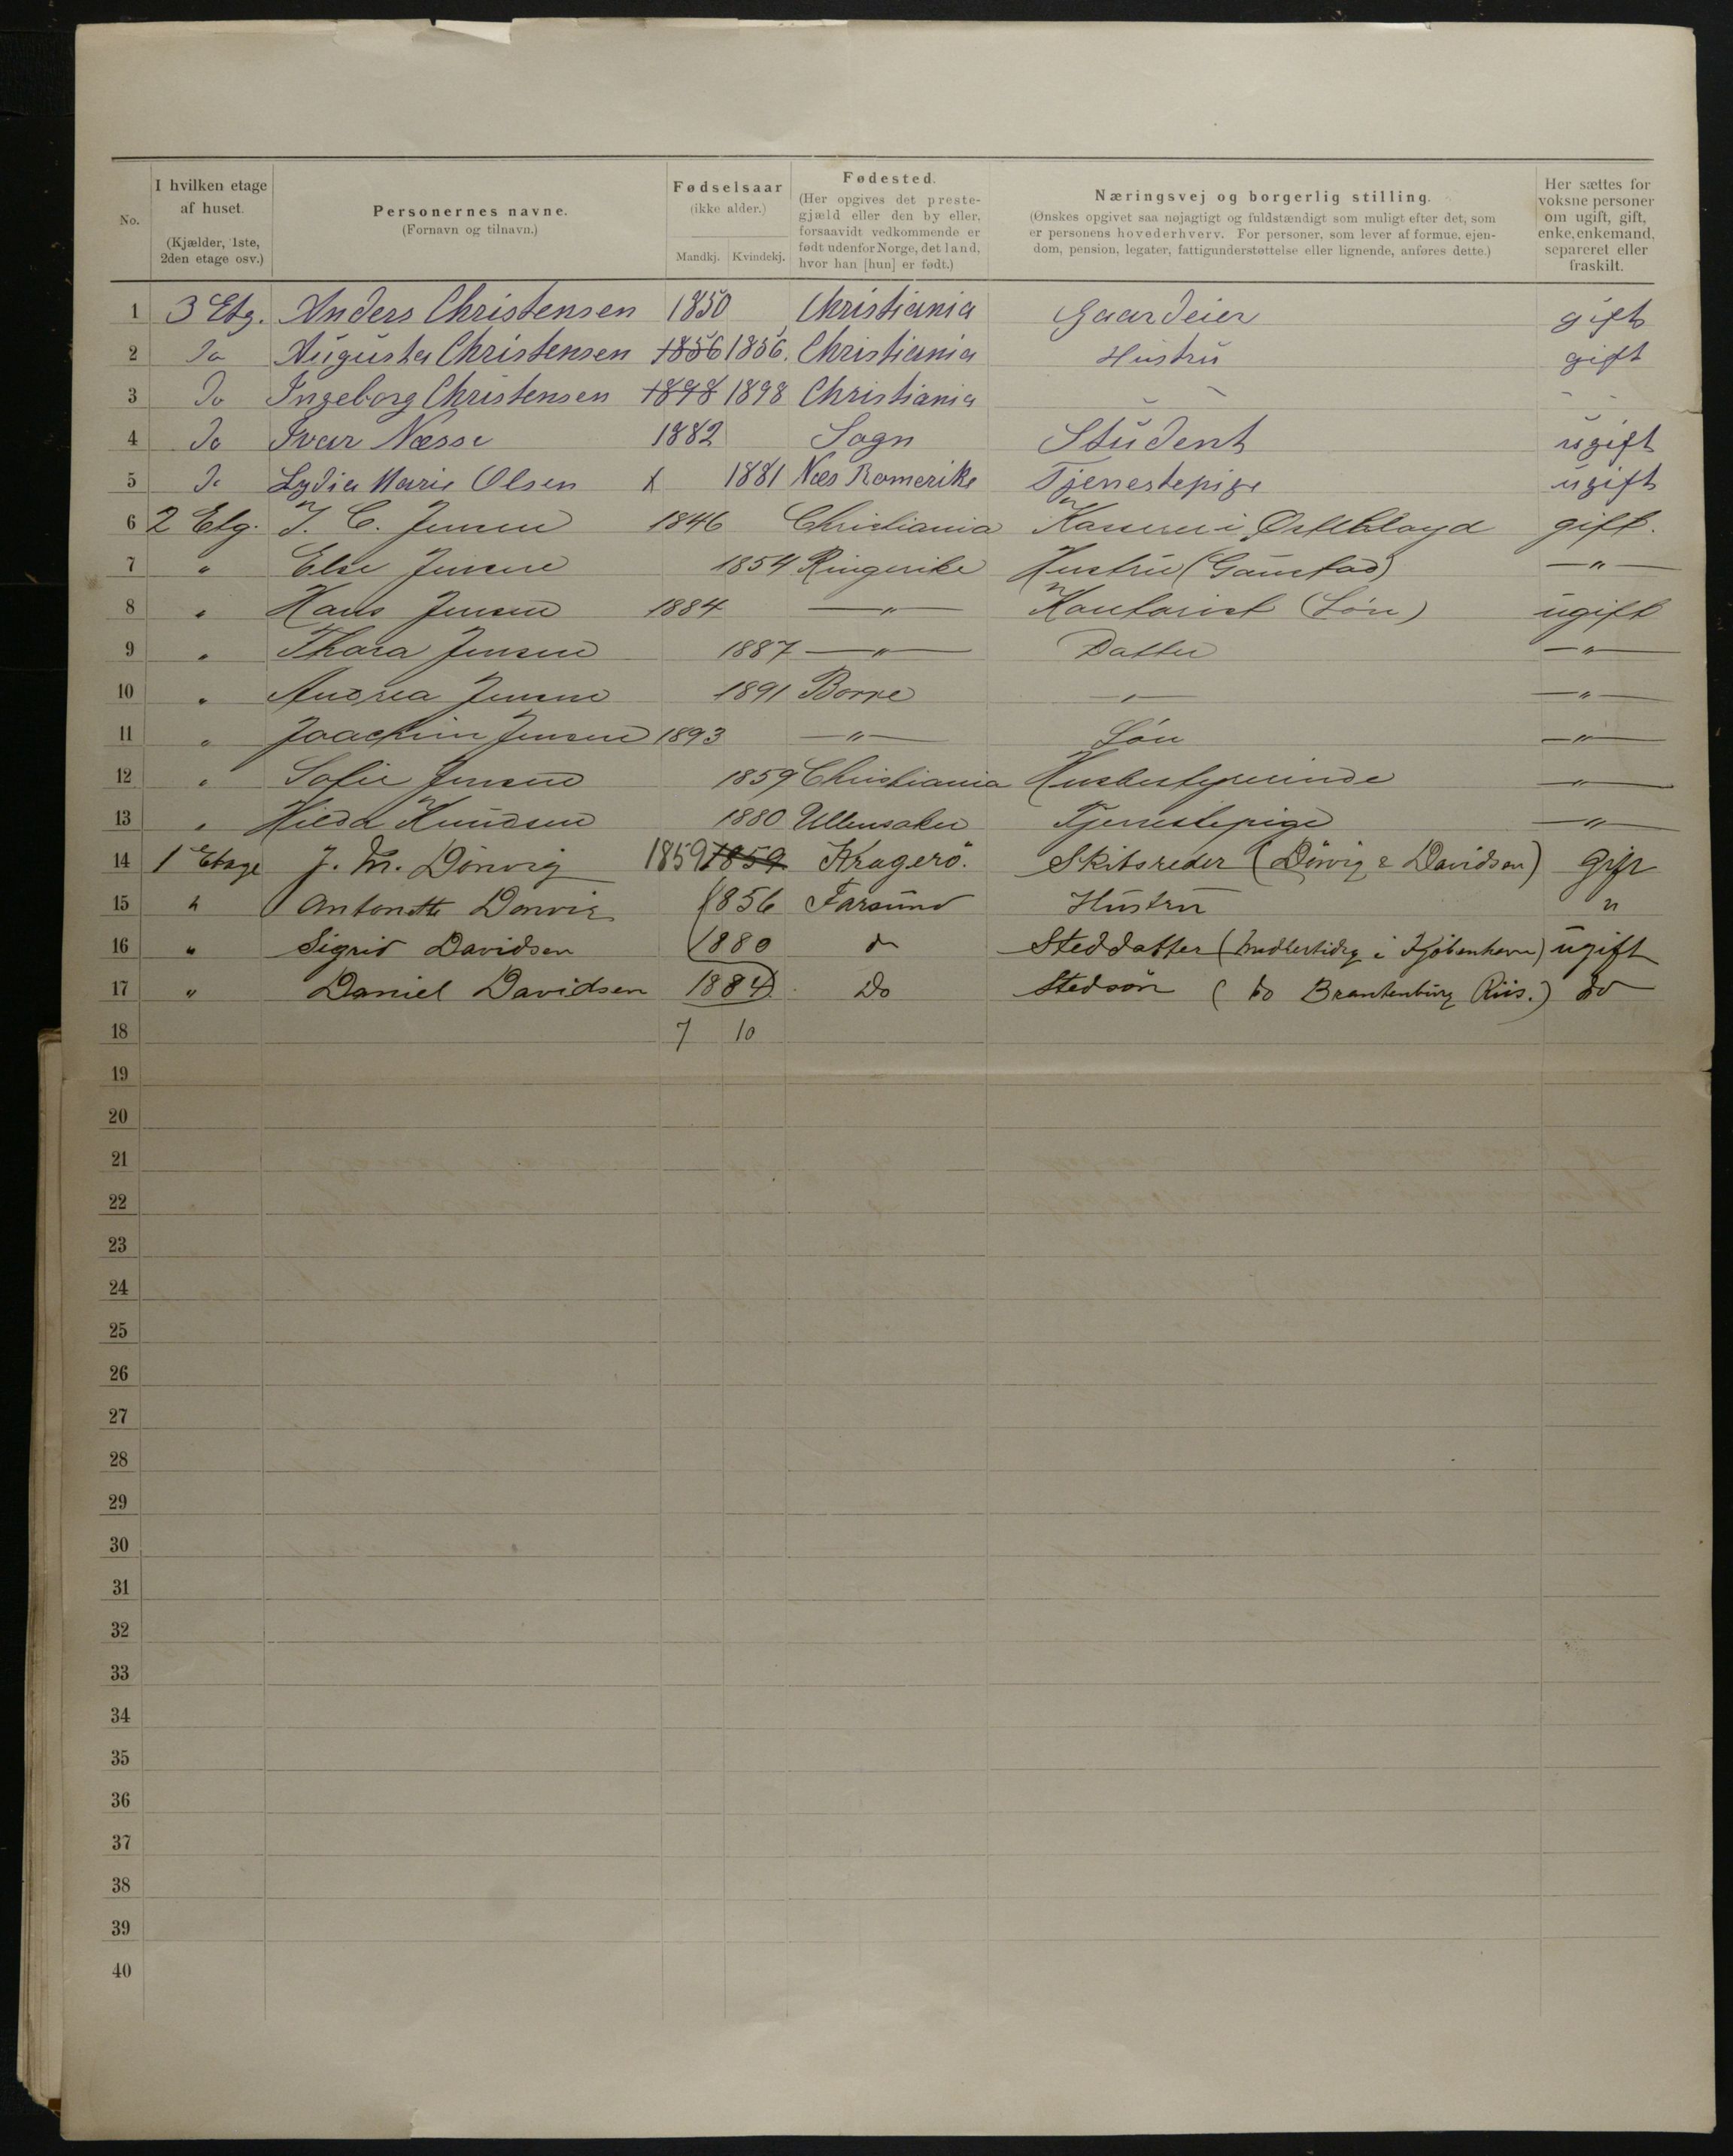 No.
I hvilken etage af huset. (Kjælder, 1ste, 2den etage osv.)
Personernes navne. (Fornavn og tilnavn.)
Fødselsaar (ikke alder.) Mandkj. Kvindekj.
Fødested. (Her opgives det prestegjæld eller den by eller, forsaavidt vedkommende er født udenfor Norge, det land, hvor han [hun] er født.)
Næringsvej og borgerlig stilling. (Ønskes opgivet saa nøjagtigt og fuldstændigt som muligt efter det, som er personens hovederhverv. For personer, som lever af formue, ejendom, pension, legater, fattigunderstøttelse eller lignende, anføres dette.)
Her sættes for voksne personer om ugift, gift, enke, enkemand, separeret eller fraskilt.
1 3 Etg. Anders Christensen 1850 Christiania Gaardeier gift
2 Do Augusta Christensen 1856 1856. Christiania Hustru gift
3 Do Ingeborg Christensen 1898 1898 Christiania - - - -
4 Do Ivar Næsse 1882 Sogn Student ugift
5 Do Lydia Marie Olsen X 1881 Næs Romerike Tjenestepige ugift
6 2 Etg. J. C. Jensen 1846 Christiania Kasserer i gift.
7 " Else Jensen 1854 Ringerike Hustru (Gaustad) —"—
8 " Hans Jensen 1884 —"— Kontorist (Søn) ugift
9 " Thora Jensen 1887 —"— Datter —"—
10 " Andrea Jensen 1891 Borre —"— —"—
11 " Joachim Jensen 1893 —"— Søn —"—
12 " Sofie Jensen 1859 Christiania Husbestyrerinde —"—
13 " Hilda Knudsen 1880 Ullensaker Tjenestepige —"—
14 1 Etage J. M. Dönvig 1859 1859 Kragerö. Skibsreder (Dönvig & Davidsen) Gift
15 " Antonette Donvig 1856 Farsund Hustru "
16 " Sigrid Davidsen (1880 do Steddatter (midlertidig i Kjöbenhavn) ugift
17 " Daniel Davidsen 1884) Do Stedsön ( do Brantenburg Riis.) do
18 7 10
19
20
21
22
23
24
25
26
27
28
29
30
31
32
33
34
35
36
37
38
39
40